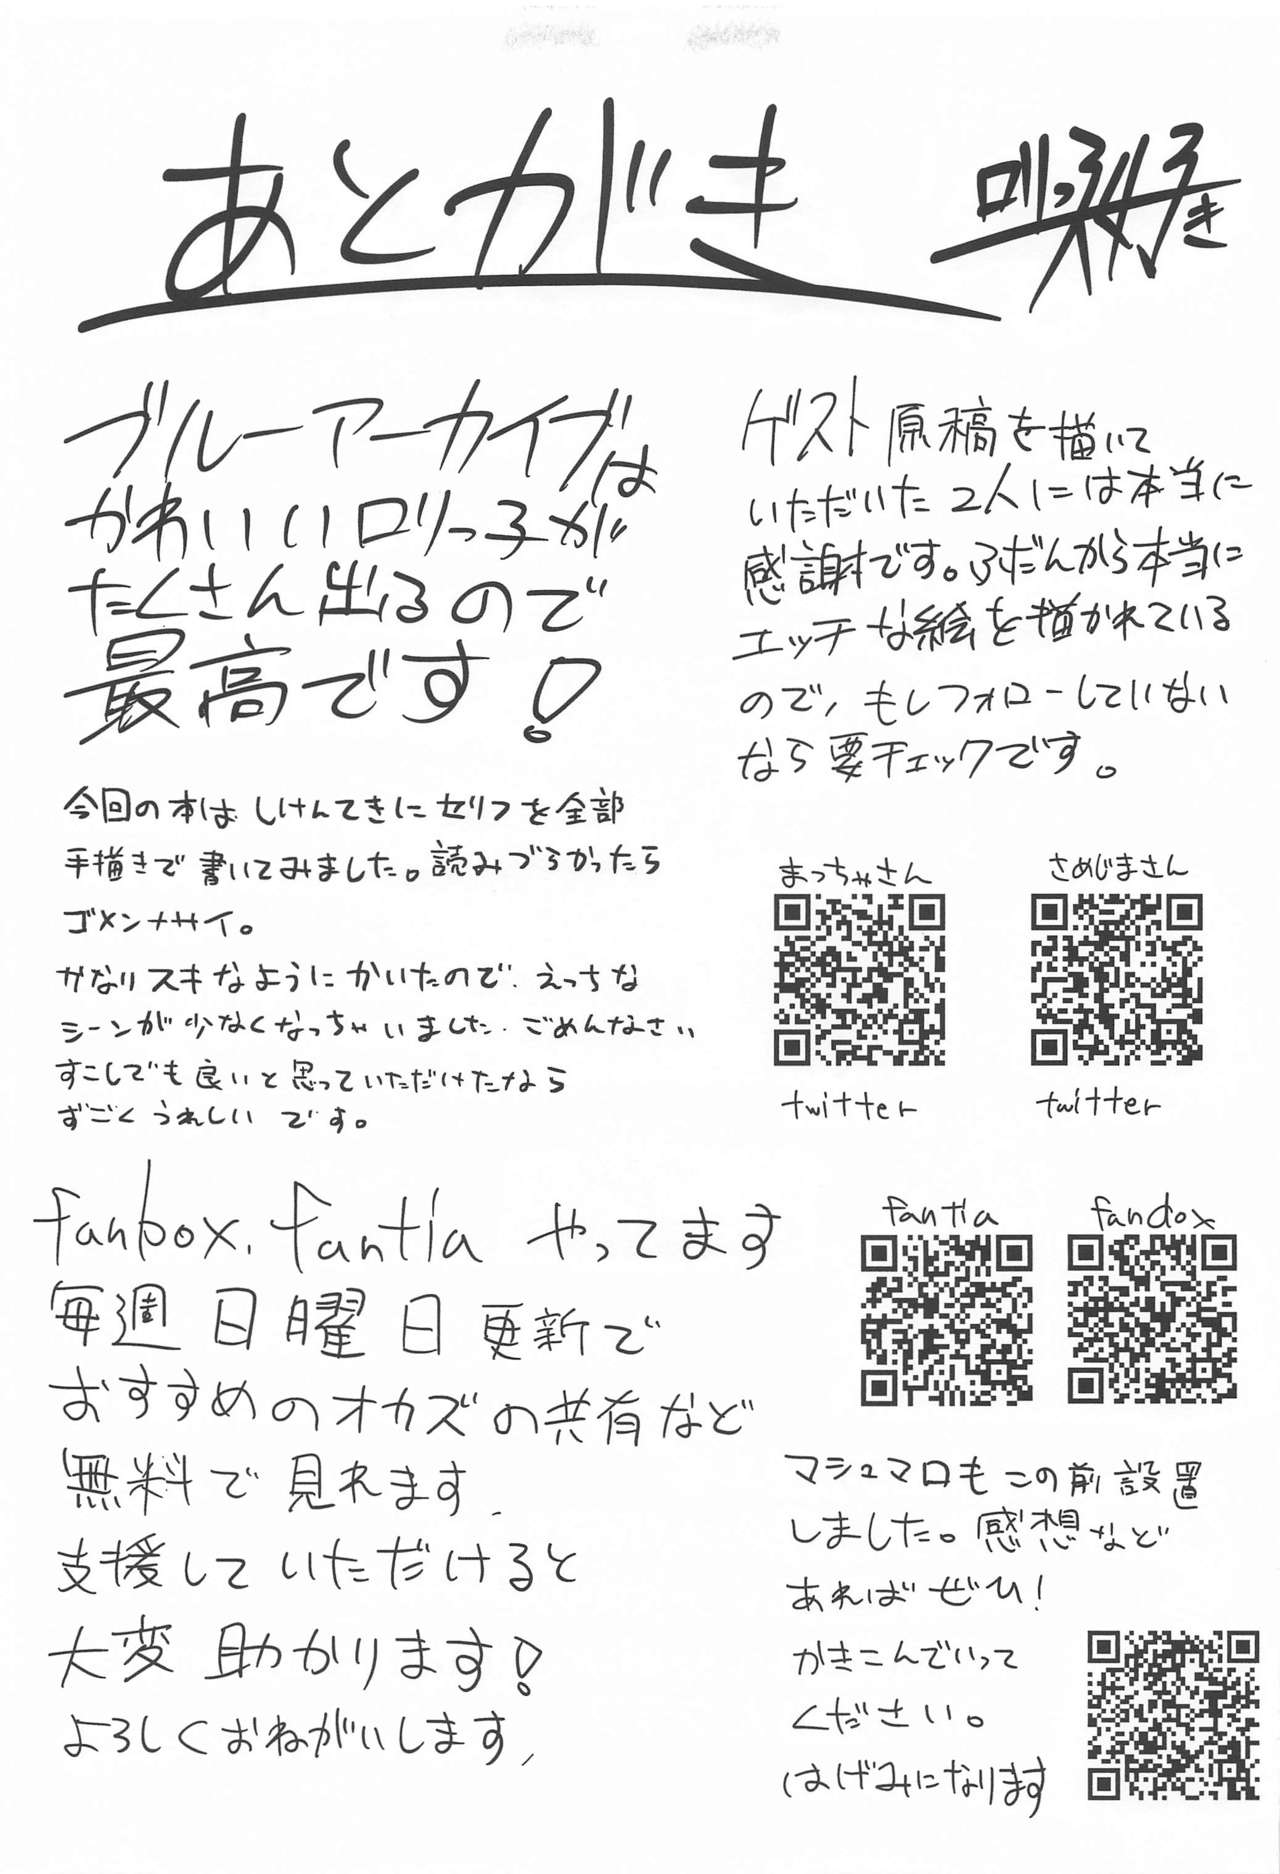 あとがき
ロリっ子大好き
ブルーアーカイブは
かわいいロリっ子が
たくさん出るので
最高です!
今回の本は しけんてきに セリフを全部
手描きで 書いてみました。読みづらかったら
ゴメンナサイ。
かなりスキなようにかいたので、えっちな
シーンが少なくなっちゃいました、ごめんなさい
すこしでも良いと思っていただけたなら
すごくうれしいです。
ゲスト原稿を描いて
いただいた2人には本当に
感謝です。ふだんから本当に
エッチな絵を描かれている
ので、もしフォローしていない
なら要チェックです。
まっちゃさん
さめじまさん
twitter
twitter
fanbox、fantia やってます
毎週 日曜日 更新で
おすすめのオカズの共有など
無料で見れます、
支援していただけると
大変 助かります!
よろしくおねがいします、
fantia
fanbox
マシュマロもこの前設置
しました。感想など
あればぜひ!
かきこんでいって
ください。
はげみになります